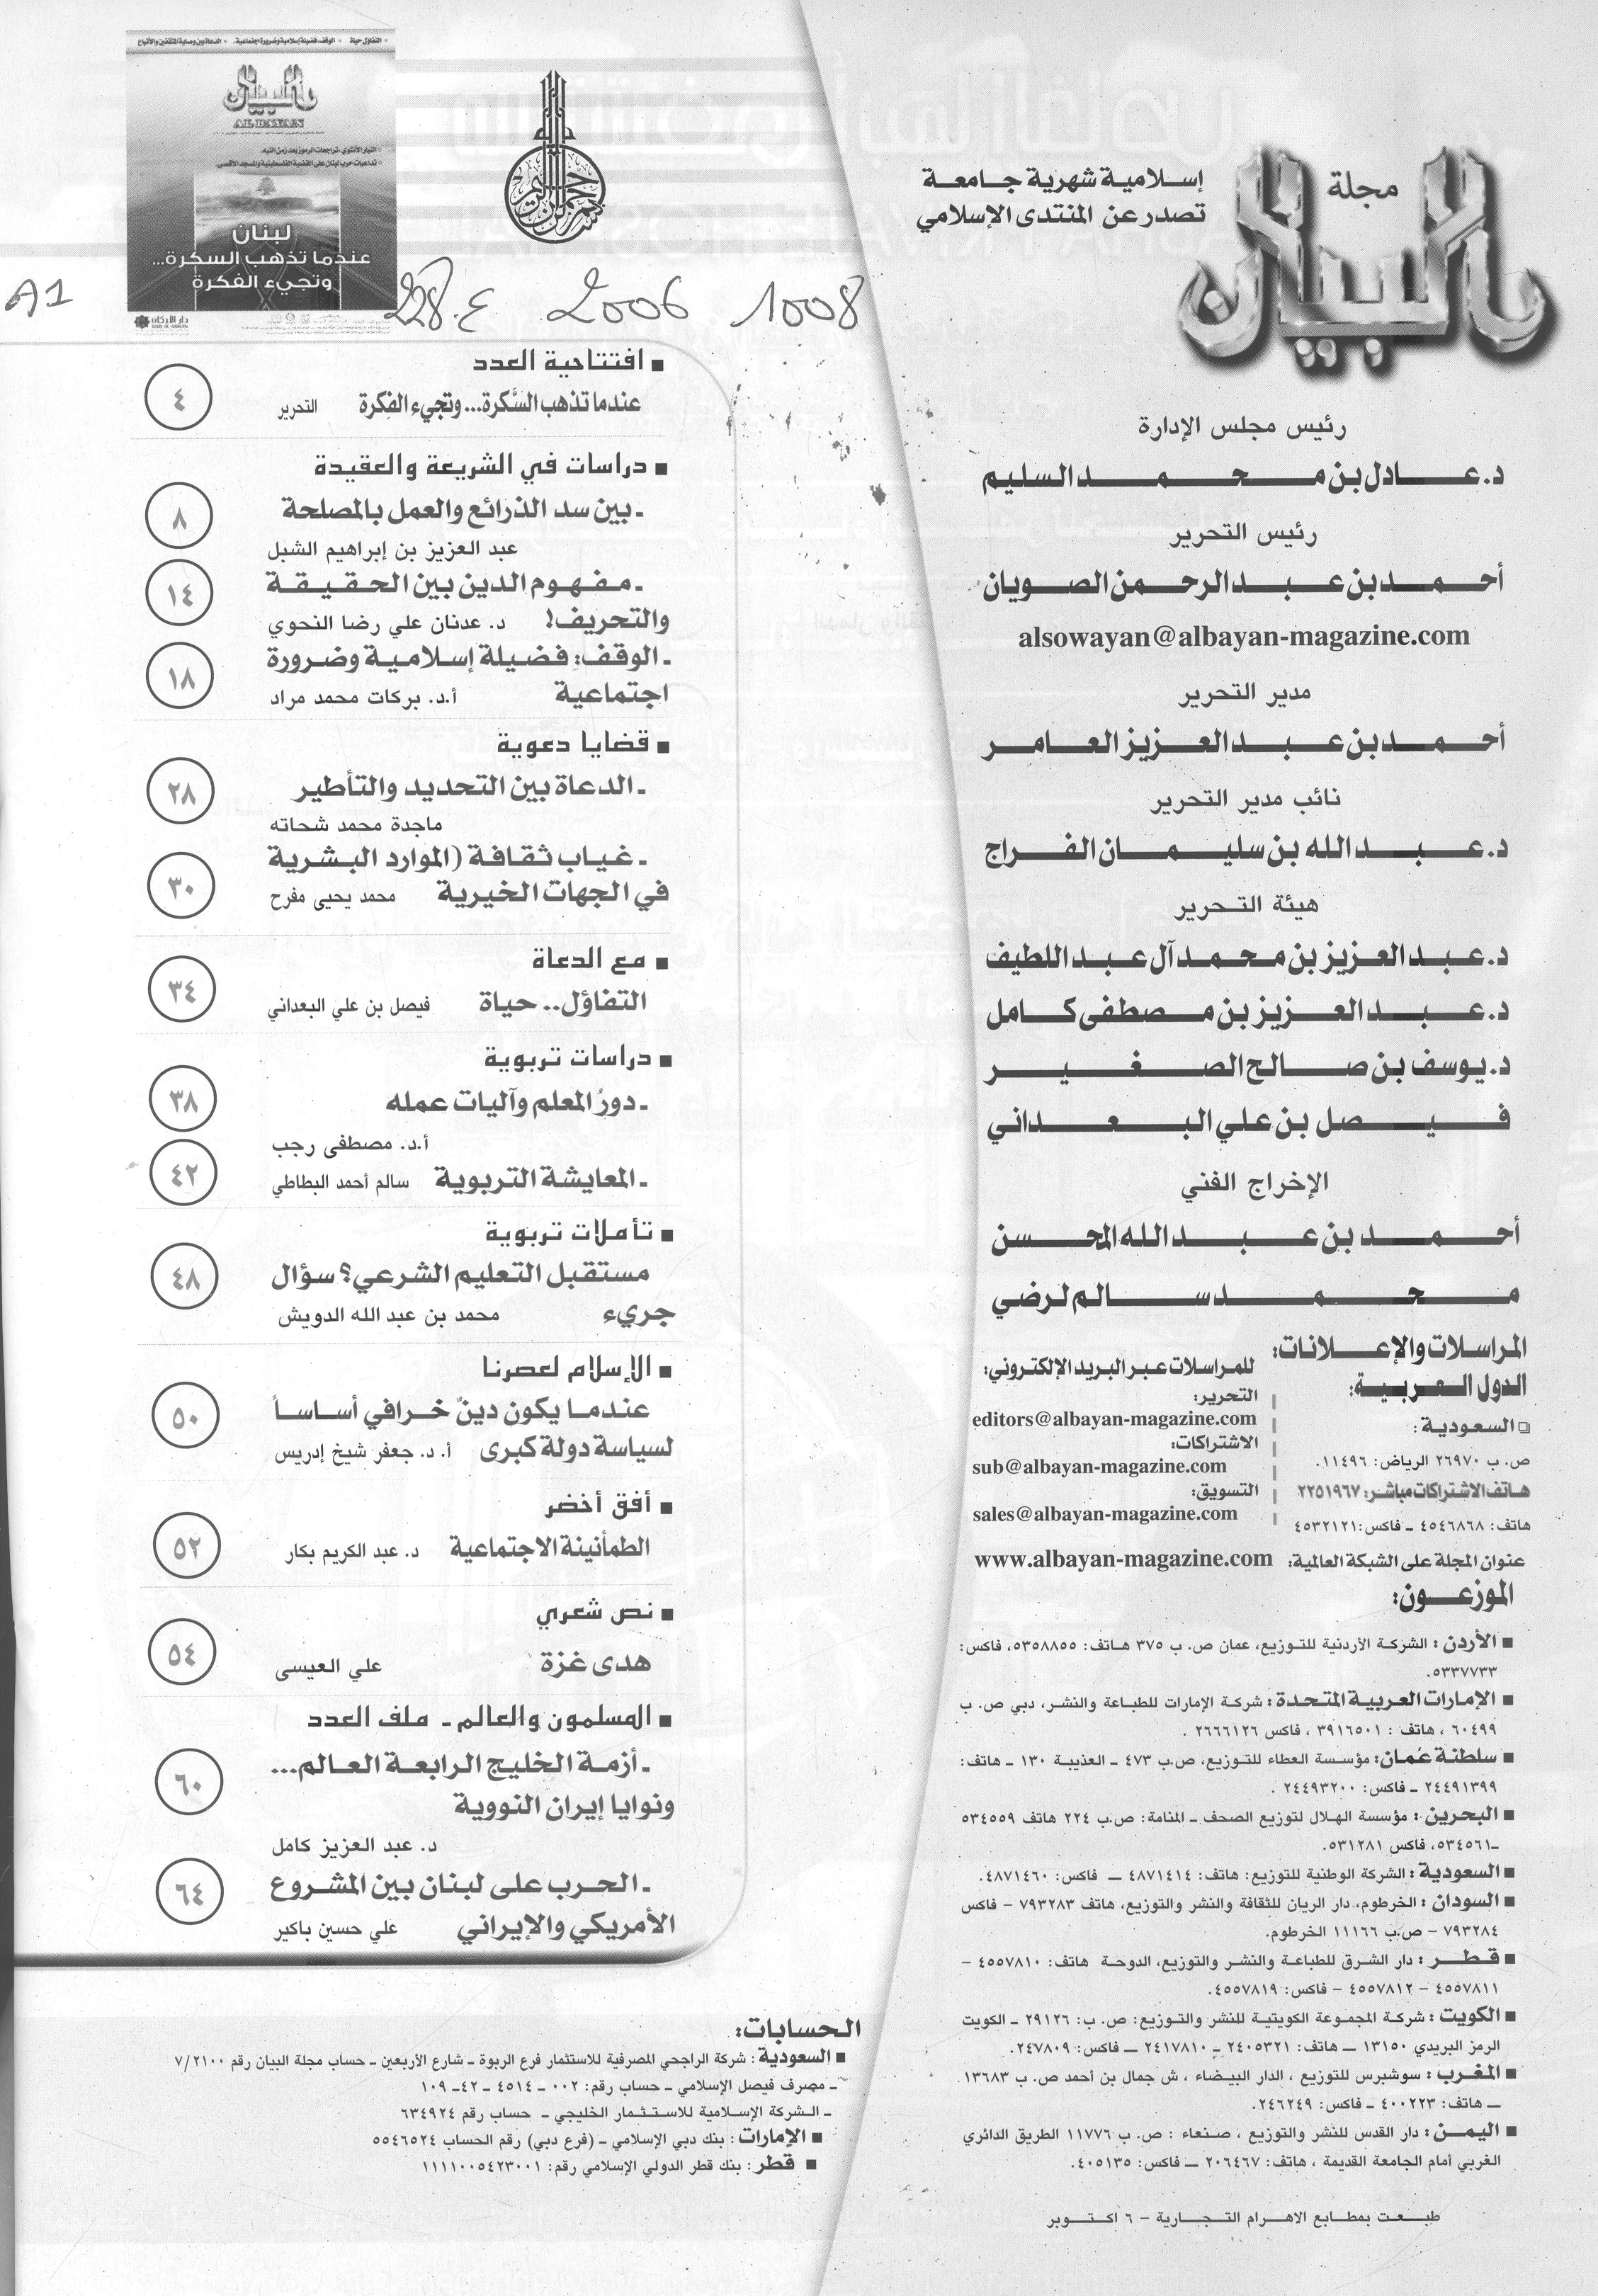 مجلة
البيان
إسلامية شهرية جامعة
تصدر عن المنتدى الإسلامي
رئيس مجلس الإدارة
د. عادل بن محمد السليم
رئيس التحرير
أحمد بن عبد الرحمن الصويان
alsowayan@albayan-magazine.com
مدير التحرير
أحمد بن عبد العزيز العامر
نائب مدير التحرير
د. عبد الله بن سليمان الفراج
هيئة التحرير
د. عبد العزيز بن محمد آل عبد اللطيف
د. عبد العزيز بن مصطفى كامل
د. يوسف بن صالح الصغير
فيصل بن علي البعداني
الإخراج الفني
أحمد بن عبد الله المحسن
محمد سالم لرضي
المراسلات والإعلانات:
الدول العربية:
❑ السعودية:
ص. ب ٢٦٩٧٠ الرياض: ١١٤٩٦.
هاتف الاشتراكات مباشر: ٢٢٥١٩٦٧
هاتف: ٤٥٤٦٨٦٨ ـ فاكس: ٤٥٣٢١٢١
للمراسلات عبر البريد الإلكتروني:
التحرير:
editors@albayan-magazine.com
الاشتراكات:
sub@albayan-magazine.com
التسويق:
sales@albayan-magazine.com
عنوان المجلة على الشبكة العالمية: www.albayan-magazine.com
الموزعون:
■ الأردن: الشركة الأردنية للتوزيع، عمان ص. ب ٣٧٥ هاتف: ٥٣٥٨٨٥٥، فاكس:
٥٣٣٧٧٣٣.
■ الإمارات العربية المتحدة: شركة الإمارات للطباعة والنشر، دبي ص. ب
٦٠٤٩٩ ، هاتف : ٣٩١٦٥٠١ ، فاكس ٢٦٦٦١٢٦ .
■ سلطنة عُمان: مؤسسة العطاء للتوزيع، ص.ب ٤٧٣ ـ العذيبة ١٣٠ ـ هاتف:
٢٤٤٩١٣٩٩ ـ فاكس: ٢٤٤٩٣٢٠٠ .
■ البحرين: مؤسسة الهلال لتوزيع الصحف ـ المنامة: ص.ب ٢٢٤ هاتف ٥٣٤٥٥٩
ـ٥٣٤٥٦١، فاكس ٥٣١٢٨١.
■ السعودية: الشركة الوطنية للتوزيع: هاتف: ٤٨٧١٤١٤ ــ فاكس: ٤٨٧١٤٦٠.
■ السودان: الخرطوم، دار الريان للثقافة والنشر والتوزيع، هاتف ٧٩٣٢٨٣ - فاكس
٧٩٣٢٨٤ - ص.ب ١١١٦٦ الخرطوم.
■ قطر: دار الشرق للطباعة والنشر والتوزيع، الدوحة هاتف: ٤٥٥٧٨١٠ -
٤٥٥٧٨١١ - ٤٥٥٧٨١٢ - فاكس: ٤٥٥٧٨١٩.
■ الكويت: شركة المجموعة الكويتية للنشر والتوزيع: ص. ب: ٢٩١٢٦ ـ الكويت
الرمز البريدي ١٣١٥٠ ــ هاتف: ٢٤٠٥٣٢١ ـ ٢٤١٧٨١٠ ــ فاكس: ٢٤٧٨٠٩.
■ المغرب: سوشبرس للتوزيع ، الدار البيضاء ، ش جمال بن أحمد ص. ب ١٣٦٨٣
ــ هاتف: ٤٠٠٢٢٣ ـ فاكس: ٢٤٦٢٤٩.
■ اليمن: دار القدس للنشر والتوزيع ، صنعاء : ص. ب ١١٧٧٦ الطريق الدائري
الغربي أمام الجامعة القديمة ، هاتف: ٢٠٦٤٦٧ ــ فاكس: ٤٠٥١٣٥.
طبعت بمطابع الاهرام التجارية - ٦ اكتوبر
البيان
AL BAYAN
لبنان
عندما تذهب السكرة...
وتجيء الفكرة
دار الأركان
A1
228.ع 2006 1008
■ افتتاحية العدد
عندما تذهب السَّكرة... وتجيء الفكرة التحرير ٤
■ دراسات في الشريعة والعقيدة
ـ بين سد الذرائع والعمل بالمصلحة ٨
عبد العزيز بن إبراهيم الشبل
ـ مفهوم الدين بين الحقيقة ١٤
والتحريف! د. عدنان علي رضا النحوي
ـ الوقف: فضيلة إسلامية وضرورة ١٨
اجتماعية أ.د. بركات محمد مراد
■ قضايا دعوية
ـ الدعاة بين التحديد والتأطير ٢٨
ماجدة محمد شحاته
ـ غياب ثقافة (الموارد البشرية ٣٠
في الجهات الخيرية محمد يحيى مفرح
■ مع الدعاة
التفاؤل.. حياة فيصل بن علي البعداني ٣٤
■ دراسات تربوية
ـ دورُ المعلم وآليات عمله ٣٨
أ.د. مصطفى رجب
ـ المعايشة التربوية سالم أحمد البطاطي ٤٢
■ تأملات تربوية
مستقبل التعليم الشرعي؟ سؤال ٤٨
جريء محمد بن عبد الله الدويش
■ الإسلام لعصرنا
عندما يكون دينٌ خرافي أساساً ٥٠
لسياسة دولة كبرى أ. د. جعفر شيخ إدريس
■ أفق أخضر
الطمأنينة الاجتماعية د. عبد الكريم بكار ٥٢
■ نص شعري
هدى غزة علي العيسى ٥٤
■ المسلمون والعالم ـ ملف العدد
ـ أزمة الخليج الرابعة العالم... ٦٠
ونوايا إيران النووية
د. عبد العزيز كامل
ـ الحرب على لبنان بين المشروع ٦٤
الأمريكي والإيراني علي حسين باكير
الحسابات:
■ السعودية: شركة الراجحي المصرفية للاستثمار فرع الربوة ـ شارع الأربعين ـ حساب مجلة البيان رقم ٧/٢١٠٠
ـ مصرف فيصل الإسلامي ـ حساب رقم: ٠٠٢ ـ ٤٥١٤ ـ ٤٢ـ ١٠٩
ـ الشركة الإسلامية للاستثمار الخليجي ـ حساب رقم ٦٣٤٩٢٤
■ الإمارات: بنك دبي الإسلامي ـ (فرع دبي) رقم الحساب ٥٥٤٦٥٢٤
■ قطر: بنك قطر الدولي الإسلامي رقم: ١١١١٠٠٥٤٢٣٠٠١